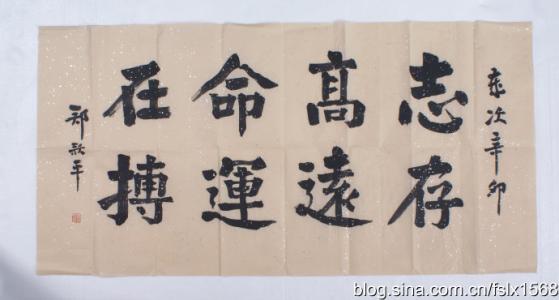 歲次辛卯
志存
髙遠
命運
在搏
郑 平
blog.sina.com.cn/fslx1568